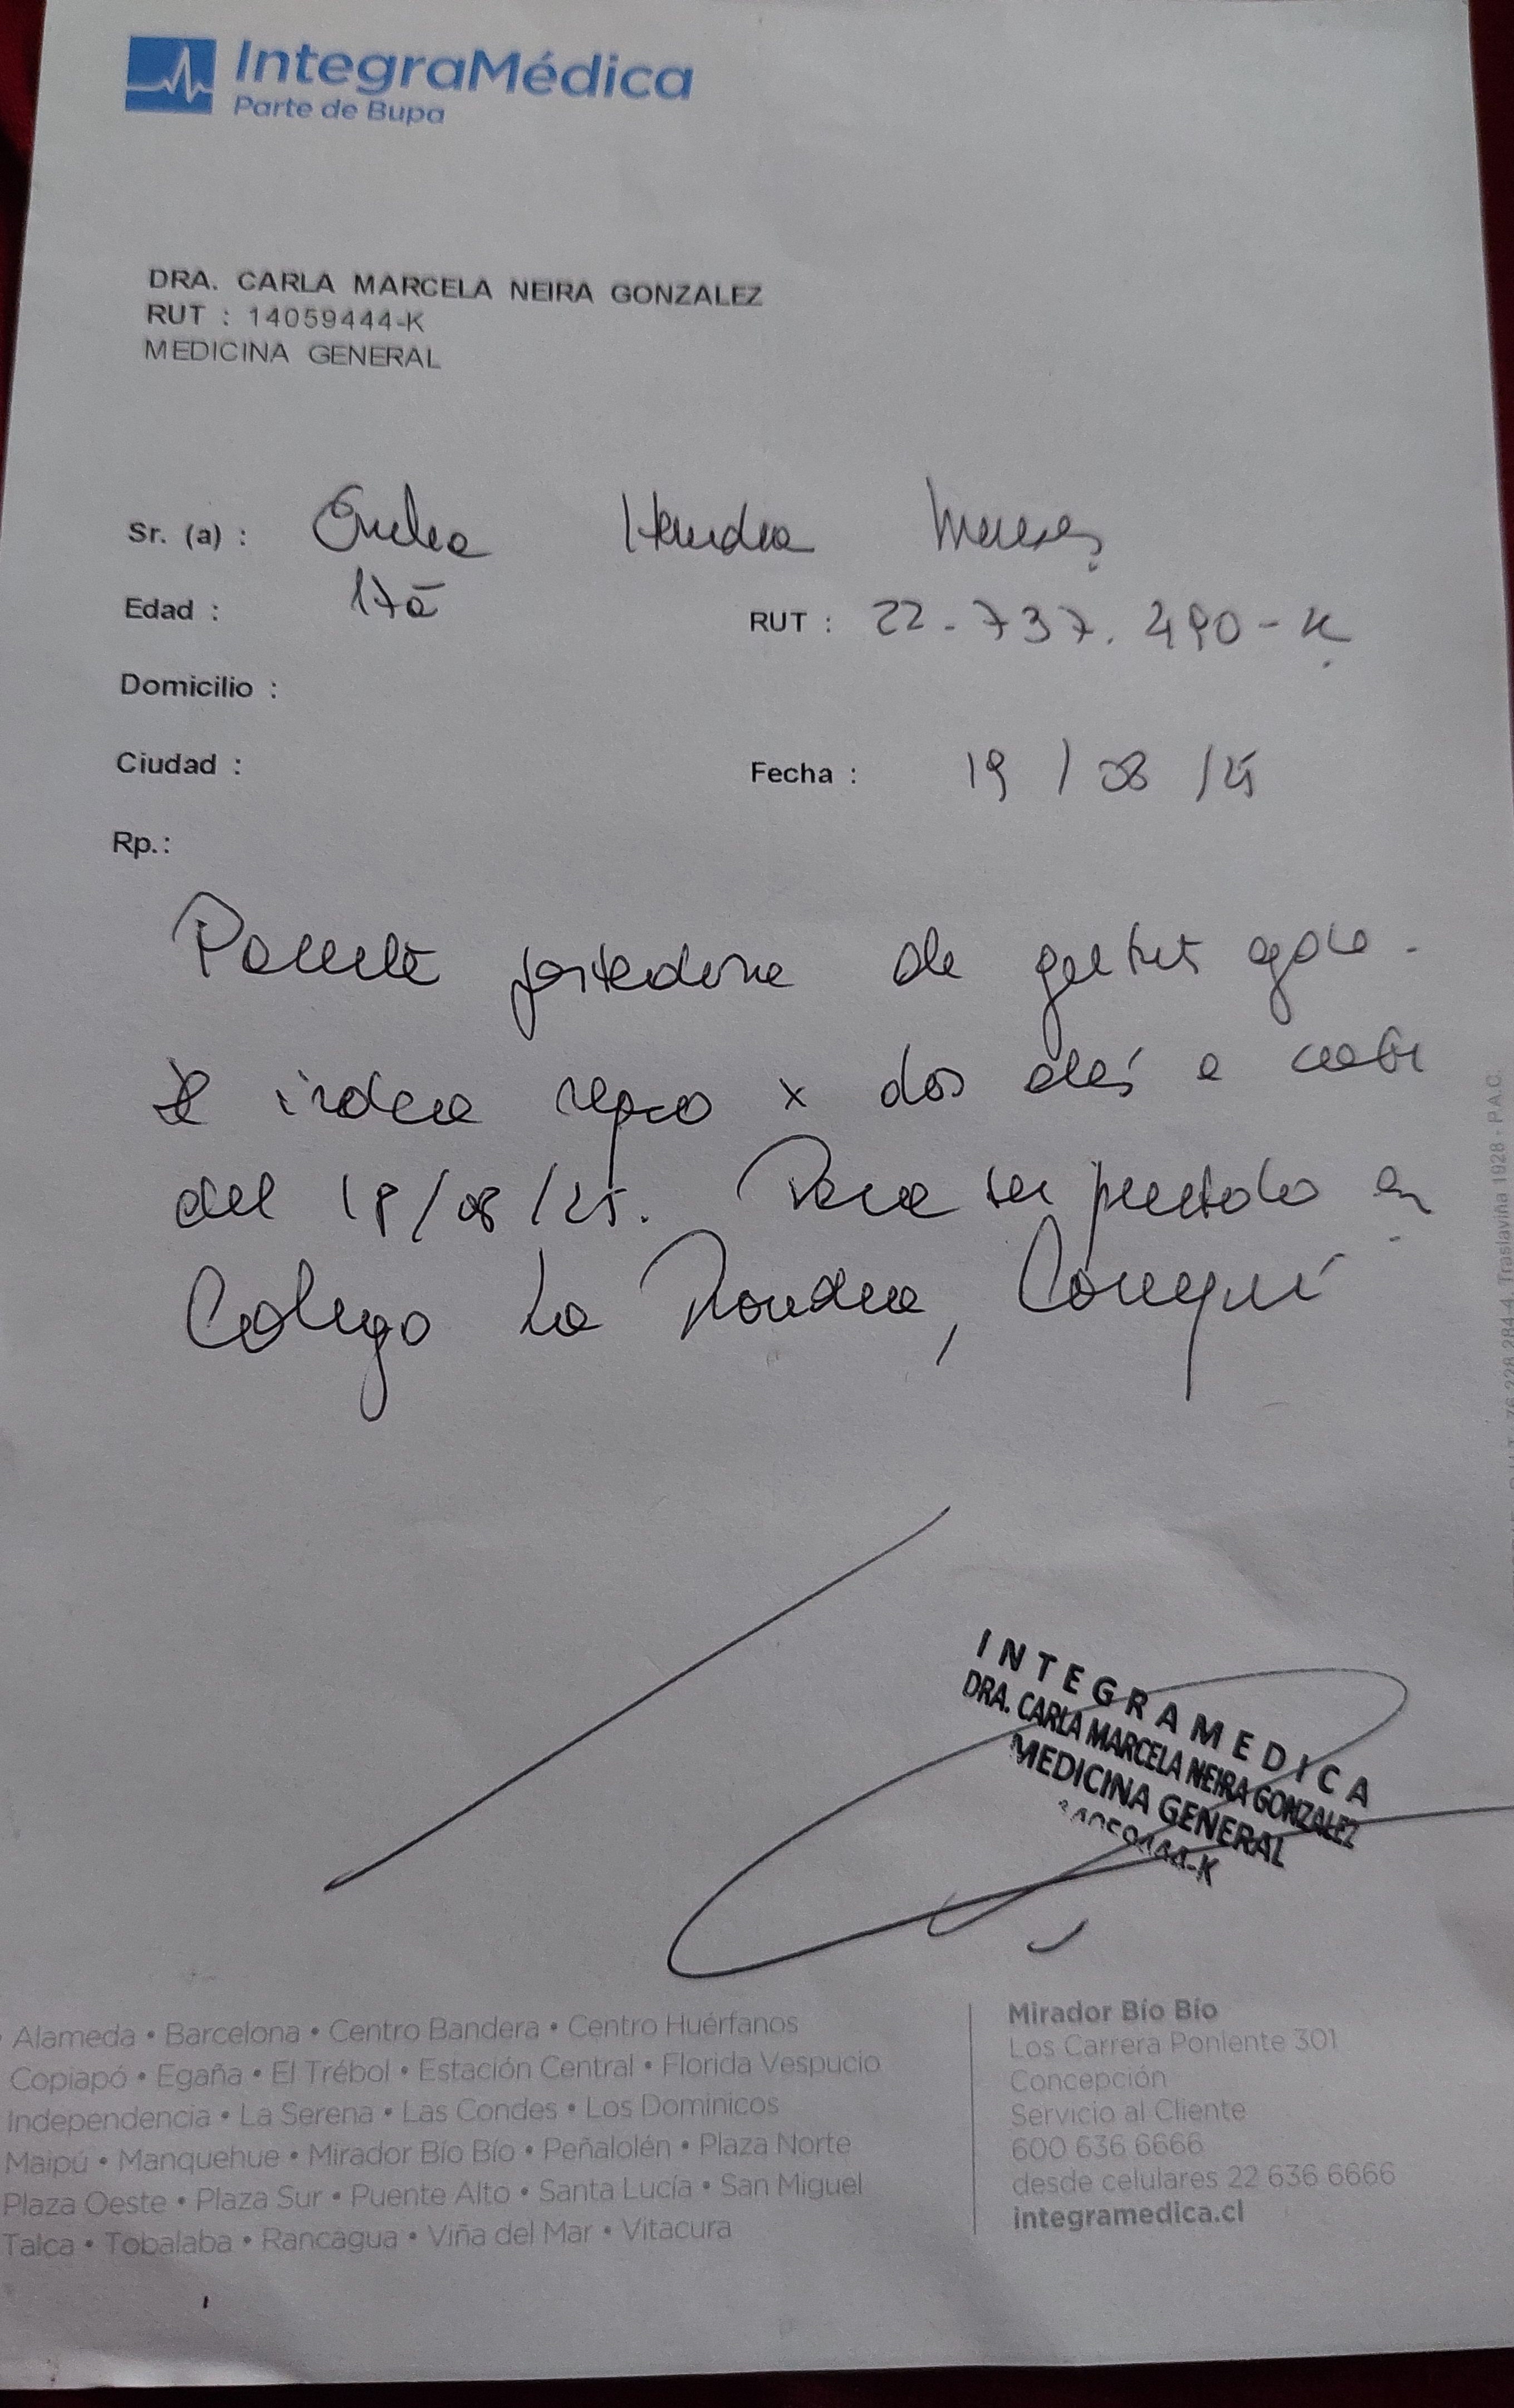 IntegraMédica
Parte de Bupa
DRA. CARLA MARCELA NEIRA GONZALEZ
RUT : 14059444-K
MEDICINA GENERAL
Sr. (a) :
Edad : 17a RUT : 22-737.490-K
Domicilio :
Ciudad : Fecha : 19 / 08 / 25
Rp.:
Paciente portadora de gastritis aguda.
Se indica reposo x dos días a contar
del 18/08/25. Para ser presentado en
Colegio La
INTEGRAMEDICA
DRA. CARLA MARCELA NEIRA GONZALEZ
MEDICINA GENERAL
14059444-K
Alameda • Barcelona • Centro Bandera • Centro Huérfanos
Copiapó • Egaña • El Trébol • Estación Central • Florida Vespucio
Independencia • La Serena • Las Condes • Los Dominicos
Maipú • Manquehue • Mirador Bío Bío • Peñalolén • Plaza Norte
Plaza Oeste • Plaza Sur • Puente Alto • Santa Lucía • San Miguel
Talca • Tobalaba • Rancagua • Viña del Mar • Vitacura
Mirador Bío Bío
Los Carrera Poniente 301
Concepción
Servicio al Cliente
600 636 6666
desde celulares 22 636 6666
integramedica.cl
76.228.284-4 Traslaviña 1928 - P.A.C.